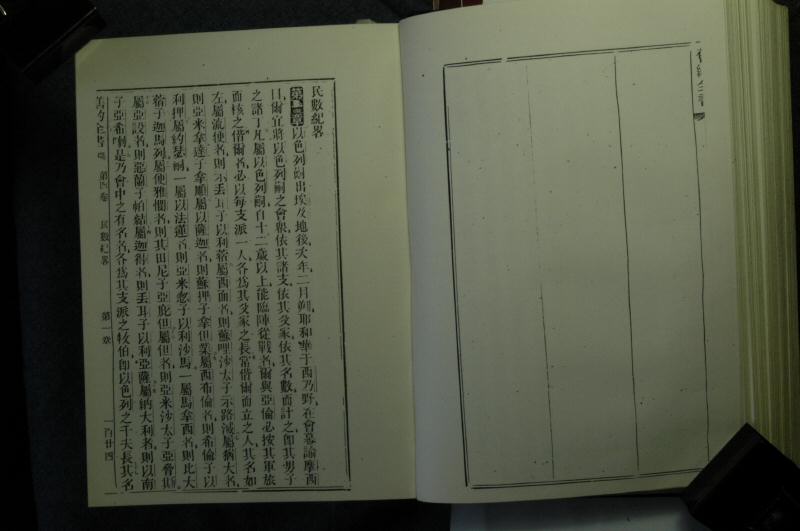 民數紀畧
第一章以色列嗣出埃及地後次年二月朔耶和華于西乃野在會幕諭摩西
曰爾宜將以色列嗣之會衆依其諸支依其父家依其名數而計之卽其男子
之諸丁凡屬以色列嗣自二十歲以上能臨陣從戰者爾與亞倫必按其軍旅
而核之偕爾者必以每支派一人各爲其父家之長當偕爾而立之人其名如
左屬流便者則示丟耳子以利蓿屬西面者則蘇哩沙太子示路滅屬猶大者
則亞米拿達子拿順屬以薩迦者則蘇押子拿但業屬西布倫者則希倫子以
利押屬約瑟嗣一屬以法蓮者則亞米忽子以利沙馬一屬馬拿西者則比大
蓿子迦馬列屬便雅憫者則其田尼子亞庇但屬但者則亞米沙太子亞脊其
屬亞設者則惡蘭子帕結屬迦得者則丟耳子以利亞薩屬納大利者則以南
子亞希喇是乃會中之有名者各爲其支派之牧伯卽以色列之千夫長其名
舊約全書 第四卷 民數紀畧 第一章 一百廿四